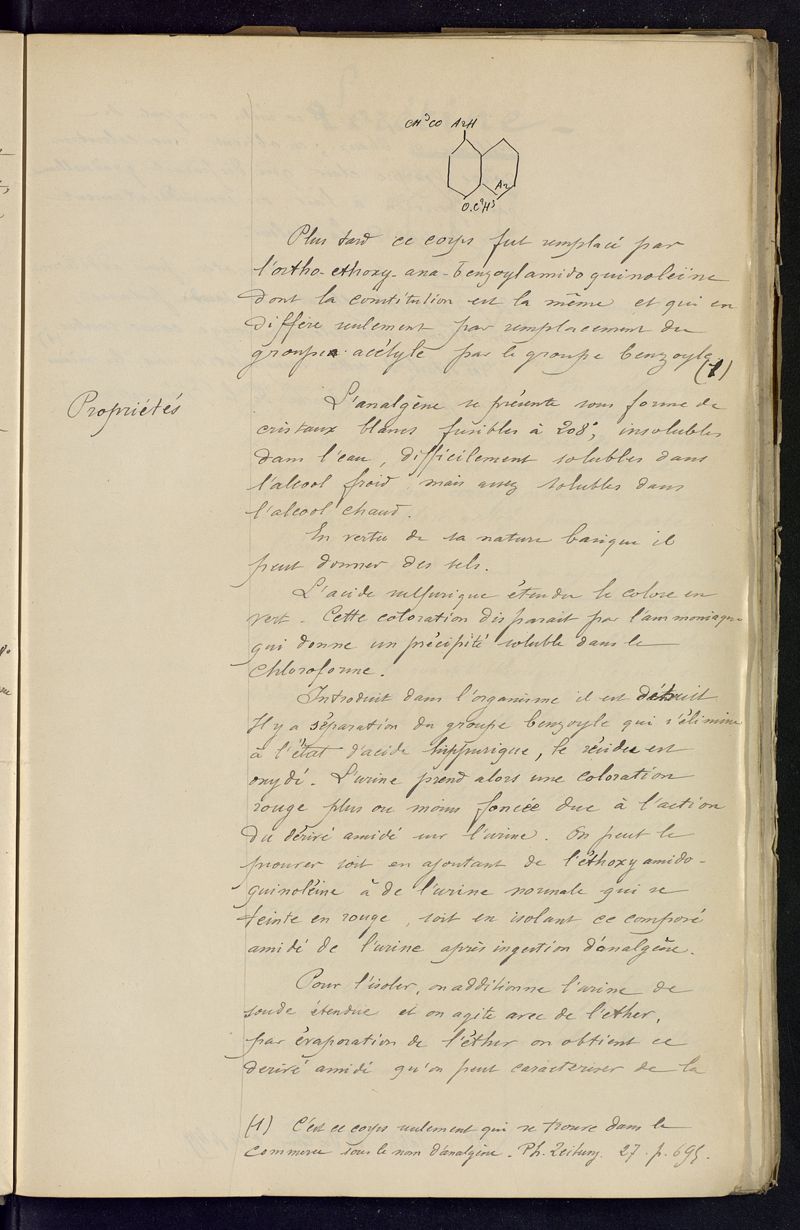 CH³CO AzH
Az
O.C²H⁵
Plus tard ce corps fut remplacé par
l'ortho-ethoxy-ana-benzoylamidoquinoleïne
dont la constitution est la même et qui en
diffère seulement par remplacement du
groupe acétyle par le groupe benzoyle
(1)
Propriétés
L'analgène se présente sous forme de
cristaux blancs fusibles à 208°, insolubles
dans l'eau, difficilement solubles dans
l'alcool froid mais assez solubles dans
l'alcool chaud.
En vertu de sa nature basique il
peut donner des sels.
L'acide sulfurique étendu le colore en
vert. Cette coloration disparait par l'ammoniaque
qui donne un précipité soluble dans le
chloroforme.
Introduit dans l'organisme il est détruit
Il y a séparation du groupe benzoyle qui s'élimine
à l'état d'acide hippurique, le résidu est
oxydé. L'urine prend alors une coloration
rouge plus ou moins foncée due à l'action
du dérivé amidé sur l'urine. On peut le
prouver soit en ajoutant de l'éthoxyamido-
quinoléine à de l'urine normale qui se
teinte en rouge, soit en isolant ce composé
amidé de l'urine après ingestion d'analgène.
Pour l'isoler, on additionne l'urine de
soude étendue et on agite avec de l'ether,
par évaporation de l'éther on obtient ce
derivé amidé qu'on peut caractériser de la
(1) C'est ce corps seulement qui se trouve dans le
commerce sous le nom d'analgène. Ph. Zeitung. 27. p. 695.